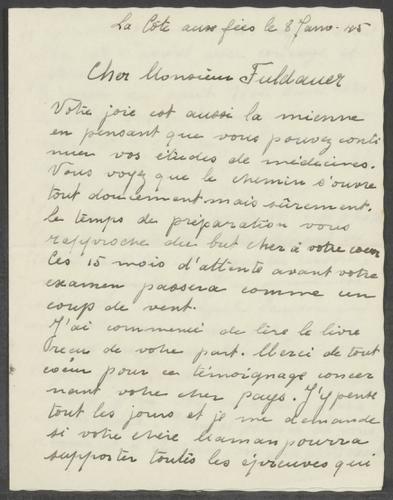 La Côte aux fées le 8 Janv. 45
Cher Monsieur Fuldauer
Votre joie est aussi la mienne
en pensant que vous pouvez conti
nuer vos études de médecines.
Vous voyez que le chemin s'ouvre
tout doucement mais sûrement.
le temps de préparation vous
rapproche du but cher à votre coeur
Ces 15 mois d'attente avant votre
examen passera comme un
coup de vent.
J'ai commencé de lire le livre
reçu de votre part. Merci de tout
coeur pour ce témoignage concer
nant votre cher pays. J'y pense
tout les jours et je me demande
si votre chère maman pourra
supporter toutes les épreuves qui